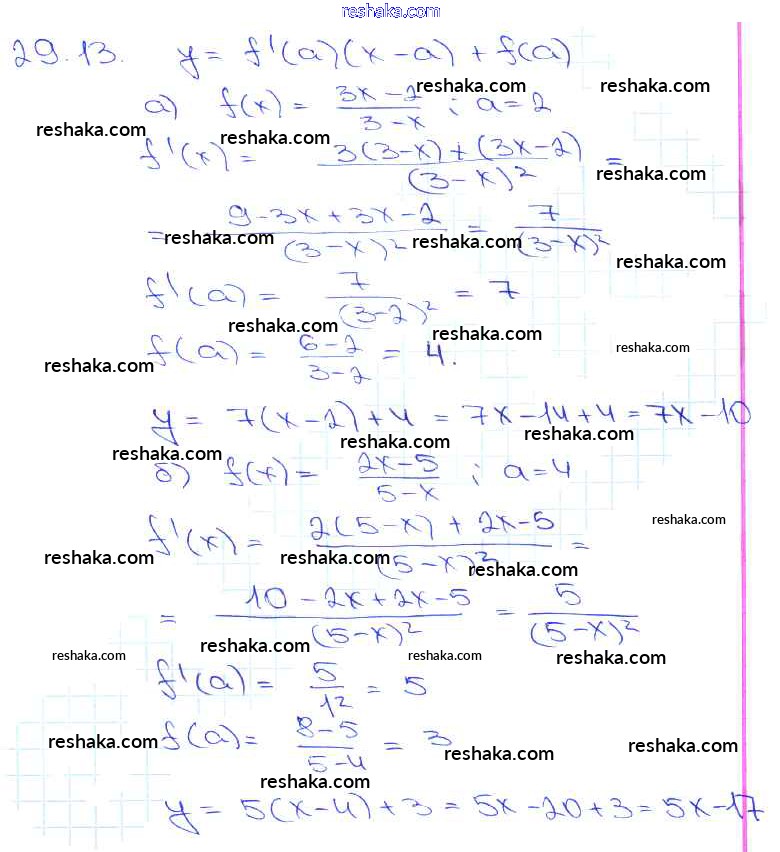 reshaka.com
29.13. y = f'(a)(x-a) + f(a)
reshaka.com
а) f(x) = (3x-2)/(3-x) ; a=2
reshaka.com reshaka.com reshaka.com
f'(x) = (3(3-x)+(3x-2))/(3-x)² =
reshaka.com
= (9-3x+3x-2)/(3-x)² = 7/(3-x)²
reshaka.com reshaka.com
reshaka.com
f'(a) = 7/(3-2)² = 7
reshaka.com reshaka.com
f(a) = (6-2)/(3-2) = 4.
reshaka.com reshaka.com
y = 7(x-2)+4 = 7x-14+4 = 7x-10
reshaka.com reshaka.com reshaka.com
б) f(x) = (2x-5)/(5-x) ; a=4
reshaka.com
f'(x) = (2(5-x)+2x-5)/(5-x)² =
reshaka.com reshaka.com reshaka.com
= (10-2x+2x-5)/(5-x)² = 5/(5-x)²
reshaka.com reshaka.com reshaka.com reshaka.com
f'(a) = 5/1² = 5
f(a) = (8-5)/(5-4) = 3
reshaka.com reshaka.com reshaka.com
reshaka.com
y = 5(x-4)+3 = 5x-20+3 = 5x-17